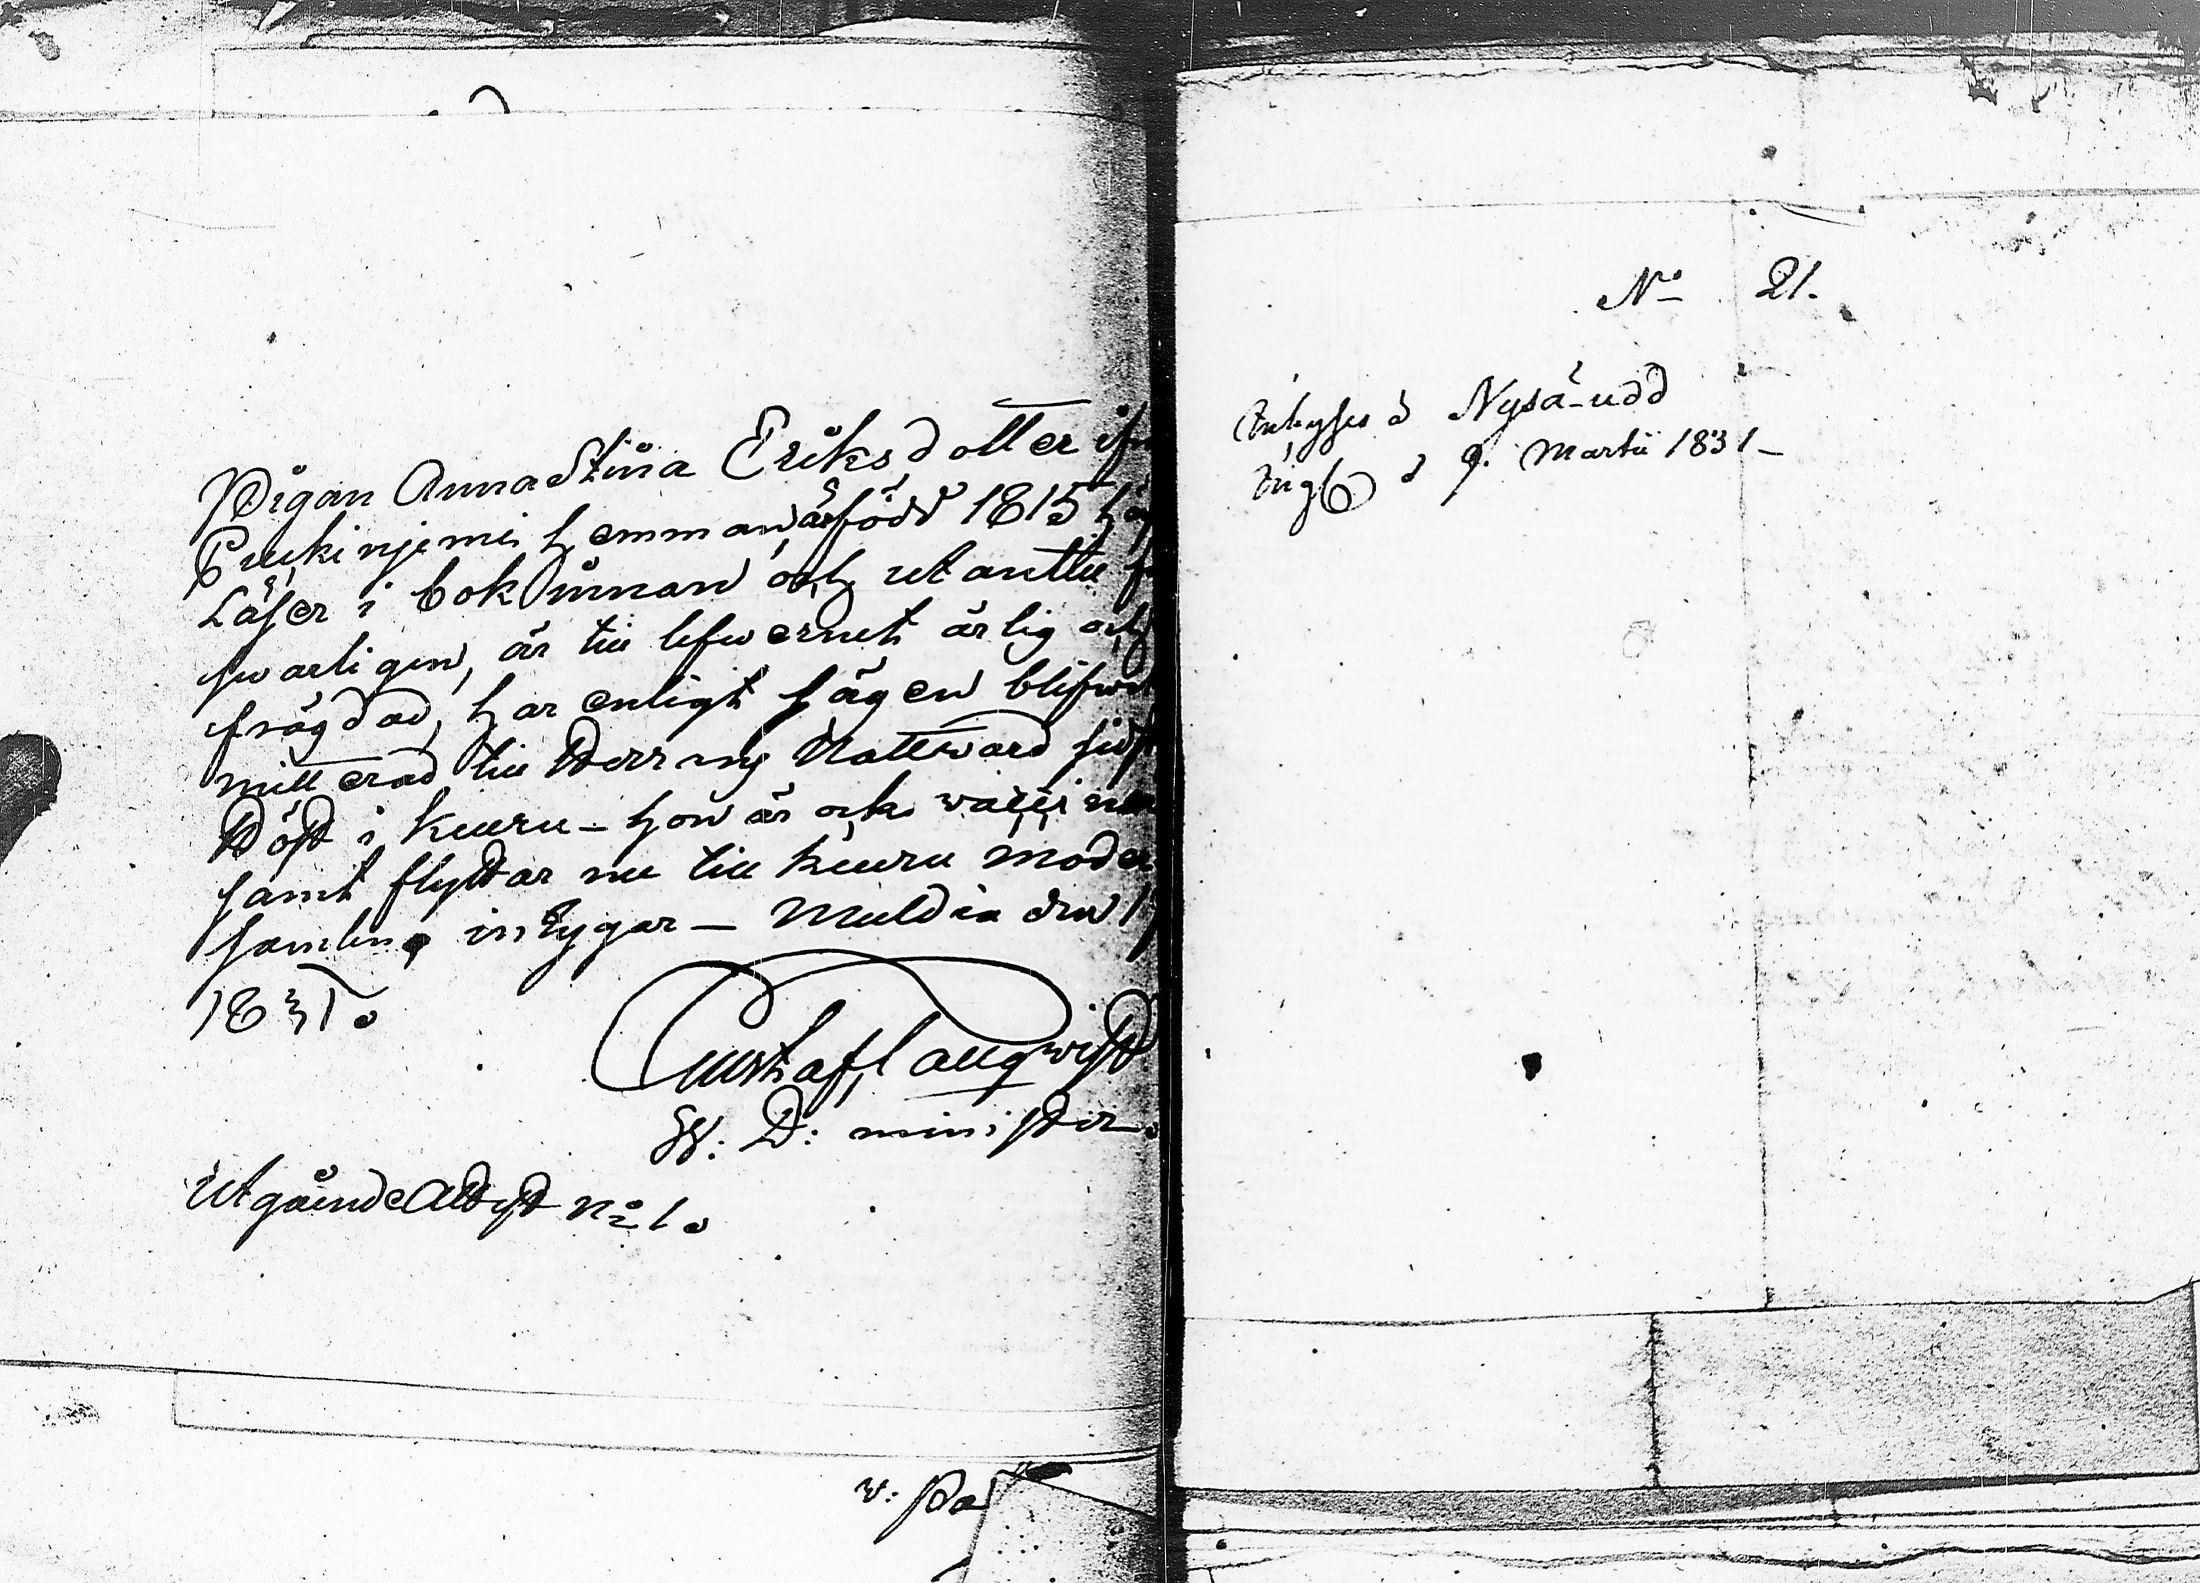 Pigan Anna Stina Eriksdotter ifr
hemman, är född 1815
Läser i bok innan och utantill
swarligen, är till lefwernet ärlig och
frägdad, har enligt sägen blifwit
mitterad till Herrans Nattward sidst
Höst i Kuuru – hon är ock
samt flyttar nu till Kuuru moder
samling intygar – Muldia den 1
1831.
Gustaf Laugwist
W: D: minister.
Utgående Attest No 1.
w: Pa
No 21.
d 9. Martii 1831 –